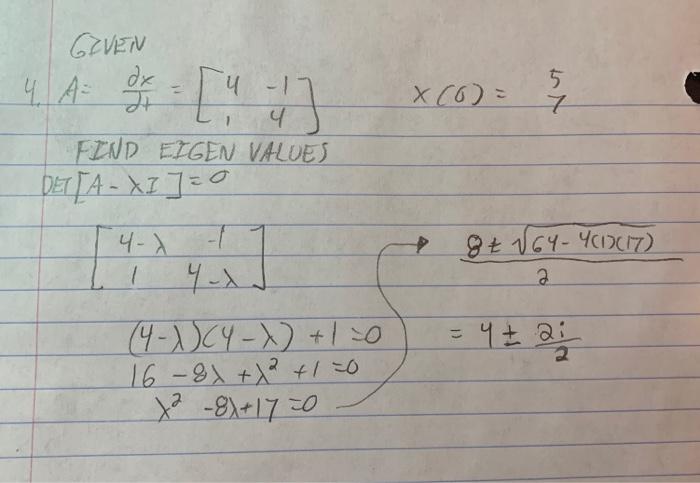 GIVEN
4. A= ∂x/∂t = [4 -1; 1 4] x(0) = 5 7
FIND EIGEN VALUES
DET[A - λI]=0
[4-λ -1; 1 4-λ]
(4-λ)(4-λ) +1=0
16 -8λ +λ² +1=0
λ² -8λ+17=0
8 ± √64-4(1)(17) / 2
= 4 ± 2i/2